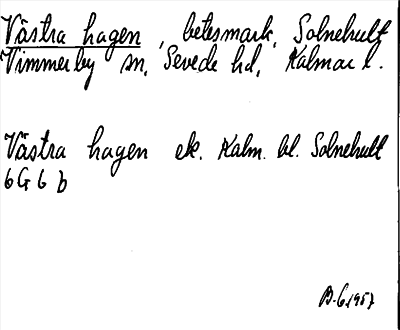 Västra hagen, betesmark, Solnehult
Vimmerby sn, Sevede hd, Kalmar l.
Västra hagen ek. Kalm. bl. Solnehult
6G6b
1957